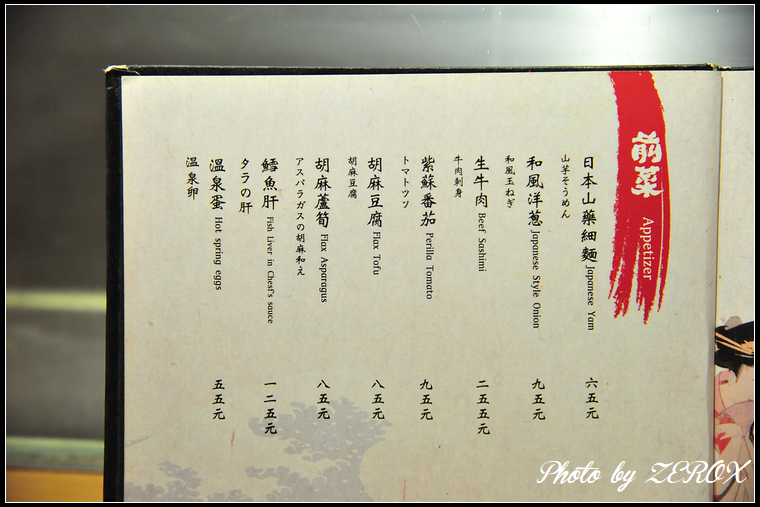 前菜
Appetizer
日本山藥細麵 Japanese Yam 六五元
山芋そうめん
和風洋蔥 Japanese Style Onion 九五元
和風玉ねぎ
生牛肉 Beef Sashimi 二五五元
牛肉刺身
紫蘇番茄 Perilla Tomato 九五元
トマトツソ
胡麻豆腐 Flax Tofu 八五元
胡麻豆腐
胡麻蘆筍 Flax Asparagus 八五元
アスパラガスの胡麻和え
鱈魚肝 Fish Liver in Chesf's sauce 一二五元
タラの肝
溫泉蛋 Hot spring eggs 五五元
温泉卵
Photo by ZEROX